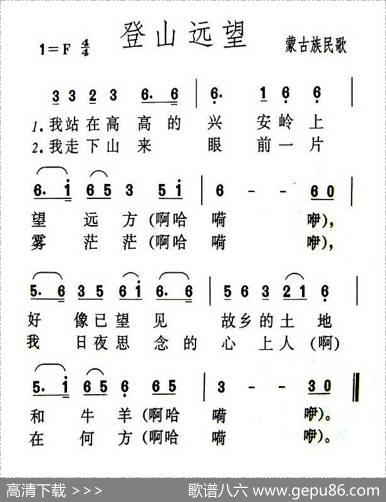 登山远望
1=F 4/4
蒙古族民歌
3 3 2 3 6. 6 | 6. 1 6 6 |
1.我站在高高的兴安岭上
2.我走下山来 眼前一片
6. i 6 5 3 5 i | 6 - - 6 0 |
望远方(啊哈嗬咿),
雾茫茫(啊哈嗬咿),
5. 6 3 5 6 i 6. | 5 6 3 2 1 6 |
好像已望见故乡的土地
我日夜思念的心上人(啊)
5. i 6 5 6 6 5 | 3 - - 3 0 ‖
和牛羊(啊哈嗬咿)。
在何方(啊哈嗬咿)。
高清下载 >>>
歌谱八六 www.gepu86.com